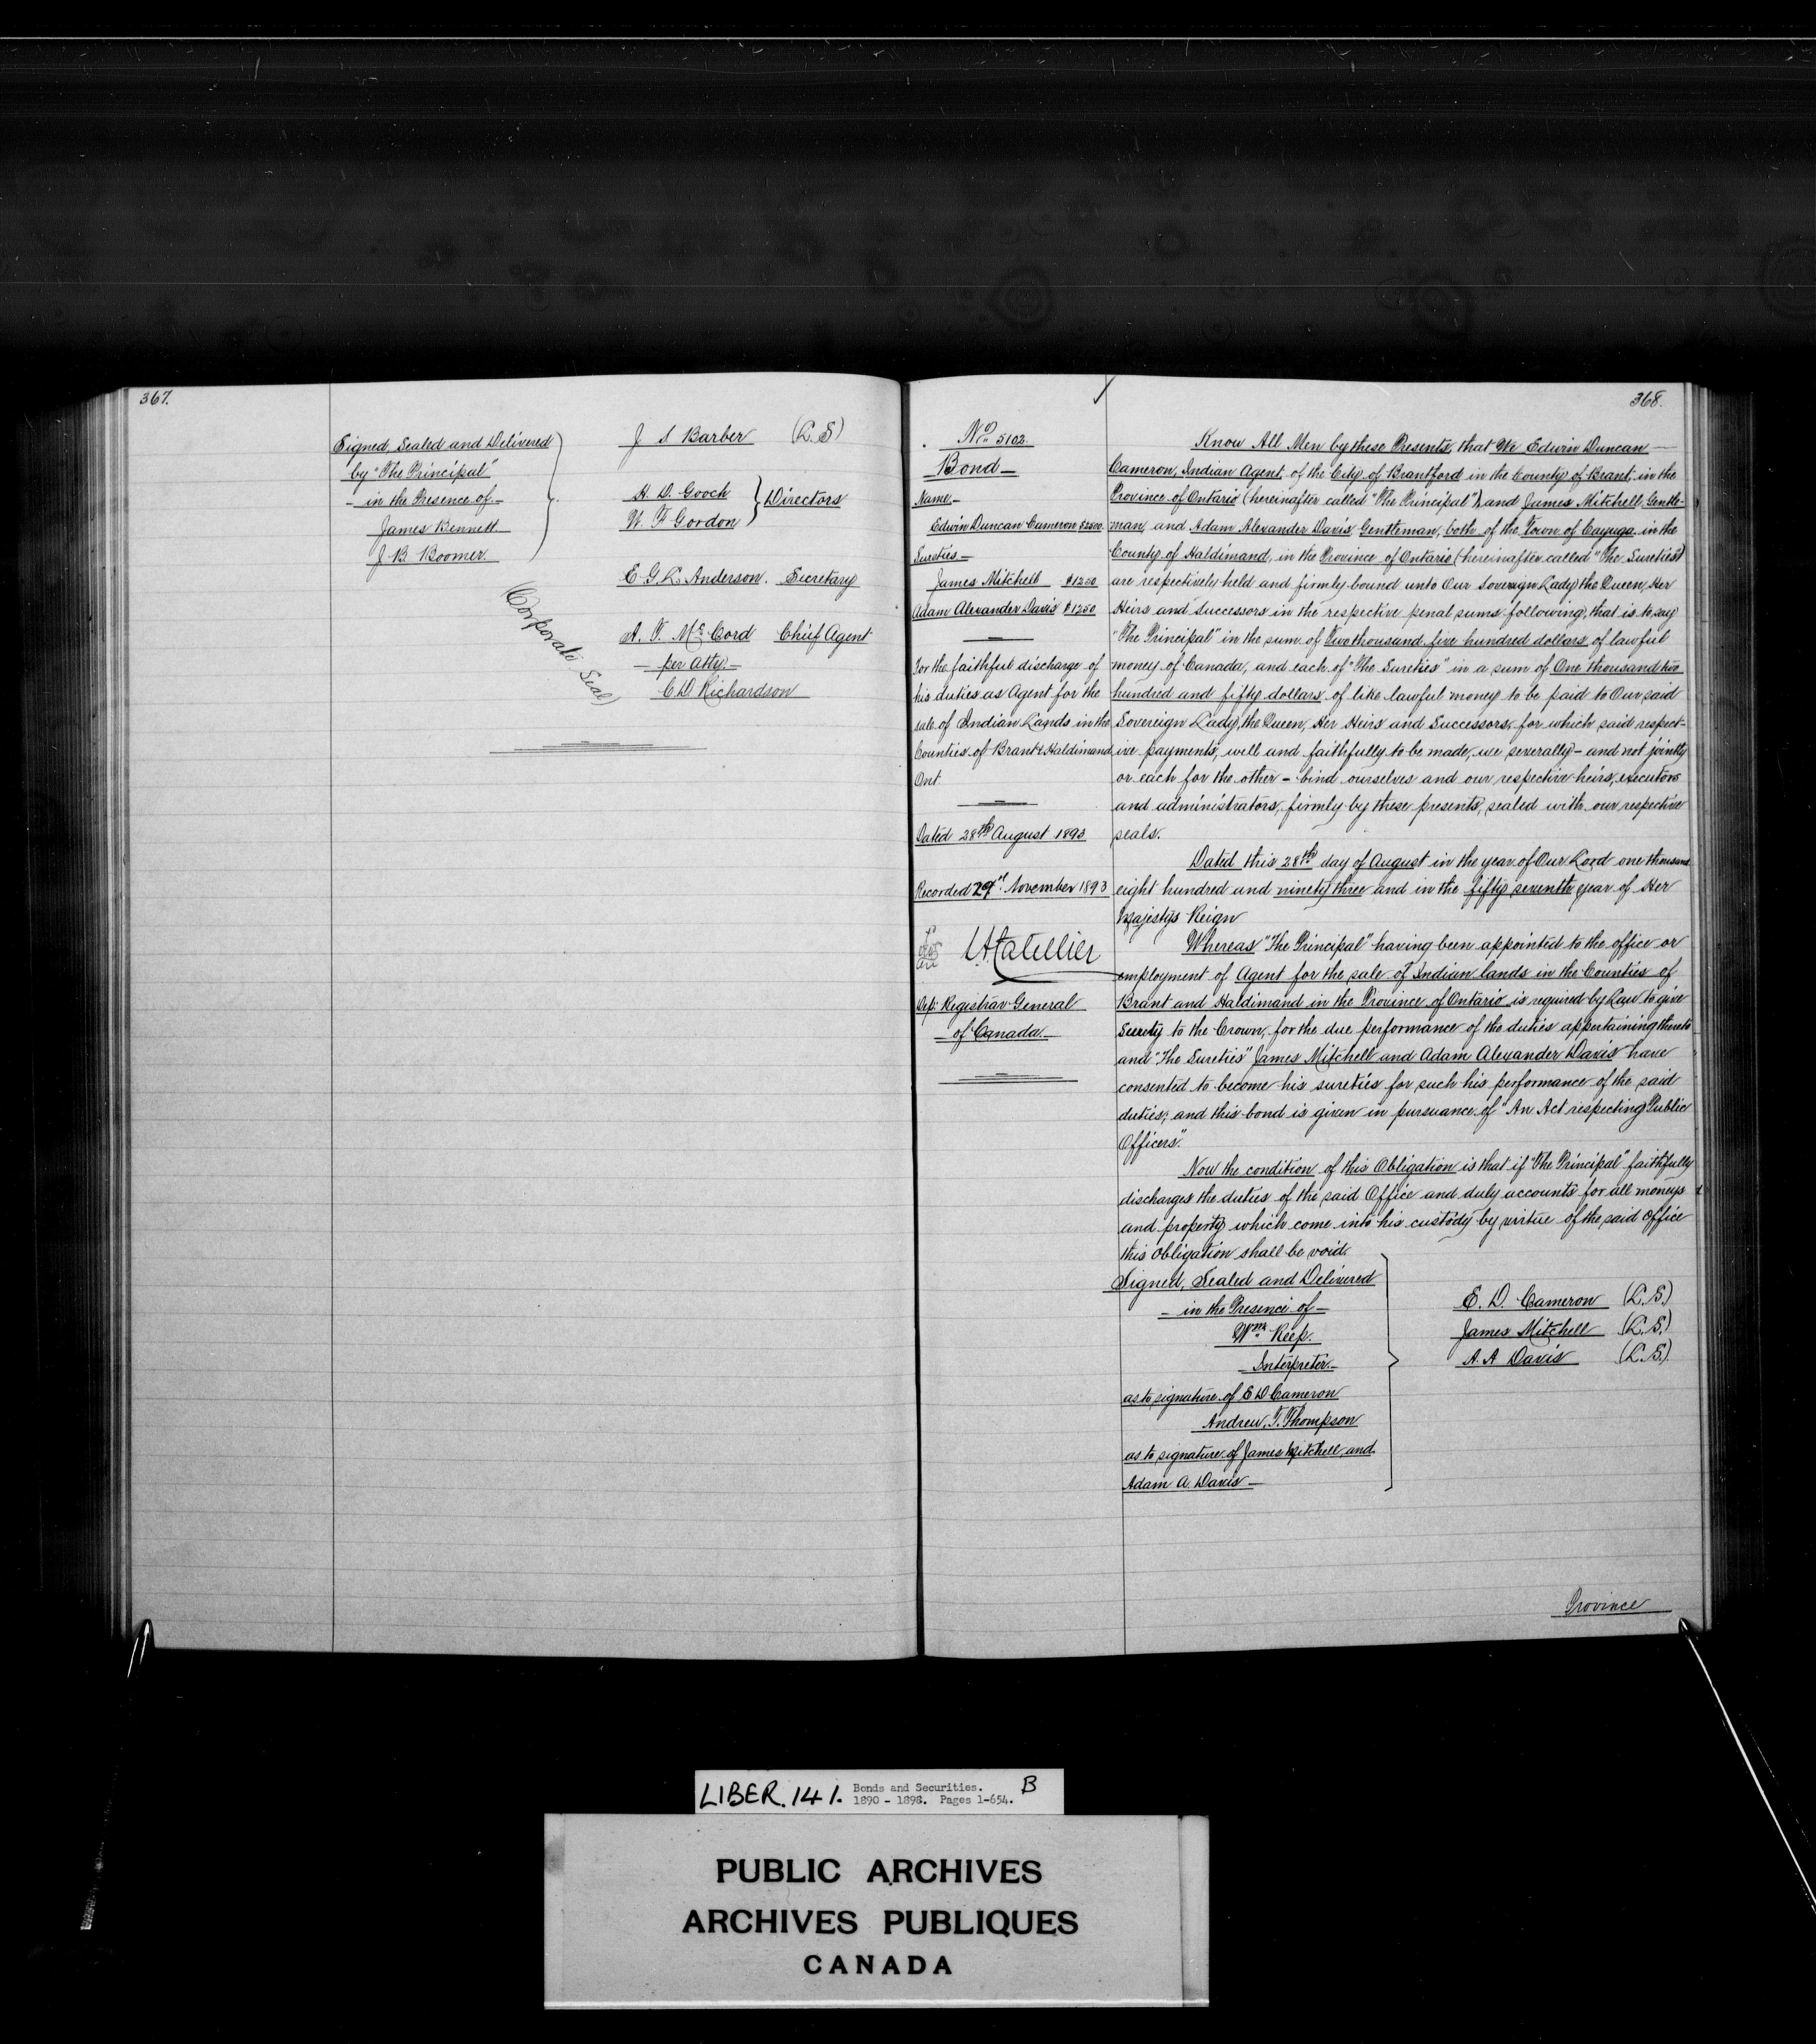 367.
Signed, Sealed and Delivered
by "The Principal"
- in the Presence of -
James Bennett
J B Boomer.
J S Barber (L.S)
H. D. Gooch
W. H Gordon
Directors
E G L. Anderson. Secretary
A. T. McCord Chief Agent
- per Atty -
C D Richardson
(Corporate Seal)
368.
No 5102.
Bond -
Name -
Edwin Duncan Cameron $2500.
Sureties -
James Mitchell $1250
Adam Alexander Davis $1250
For the faithful discharge of
his duties as Agent for the
sale of Indian Lands in the
Counties of Brant & Haldimand
Ont.
Dated 28th August 1893
Recorded 29th November 1893
Dep: Registrar General
of Canada. -
Know All Men by these Presents, that We Edwin Duncan -
Cameron, Indian Agent, of the City of Brantford in the County of Brant in the
Province of Ontario (hereinafter called "The Principal") and James Mitchell, Gentle-
man, and Adam Alexander Davis, Gentleman, both of the Town of Cayuga in the
County of Haldimand, in the Province of Ontario (hereinafter called "The Sureties")
are respectively held and firmly bound unto Our Sovereign Lady the Queen, Her
Heirs and Successors in the respective penal sums following, that is to say
"The Principal" in the sum of Two thousand five hundred dollars of lawful
money of Canada, and each of "the Sureties" in a sum of One thousand two
hundred and fifty dollars of like lawful money to be paid to Our said
Sovereign Lady, the Queen, Her Heirs and Successors, for which said respect-
ive payments, well and faithfully to be made, we severally - and not jointly
or each for the other - bind ourselves and our respective heirs, executors
and administrators, firmly by these presents, sealed with our respective
seals.
Dated this 28th day of August in the year of Our Lord one thousand
eight hundred and ninety three and in the fifty seventh year of Her
Majestys Reign
Whereas "The Principal" having been appointed to the office or
employment of Agent for the sale of Indian lands in the Counties of
Brant and Haldimand in the Province of Ontario is required by Law to give
Security to the Crown, for the due performance of the duties appertaining thereto
and "The Sureties" James Mitchell and Adam Alexander Davis have
consented to become his sureties for such his performance of the said
duties; and this bond is given in pursuance of "An Act respecting Public
Officers".
Now the condition of this Obligation is that if "The Principal" faithfully
discharges the duties of the said Office and duly accounts for all moneys
and property which come into his custody by virtue of the said Office
this obligation shall be void.
Signed, Sealed and Delivered
- in the Presence of -
Wm Reep.
Interpreter. -
as to signature of E D Cameron
Andrew. T. Thompson
as to signature of James Mitchell, and
Adam A. Davis -
E. D. Cameron (L.S.)
James Mitchell (L.S.)
A. A Davis (L.S.)
Province
LIBER. 141. Bonds and Securities. B
1890 - 1898. Pages 1-654.
PUBLIC ARCHIVES
ARCHIVES PUBLIQUES
CANADA